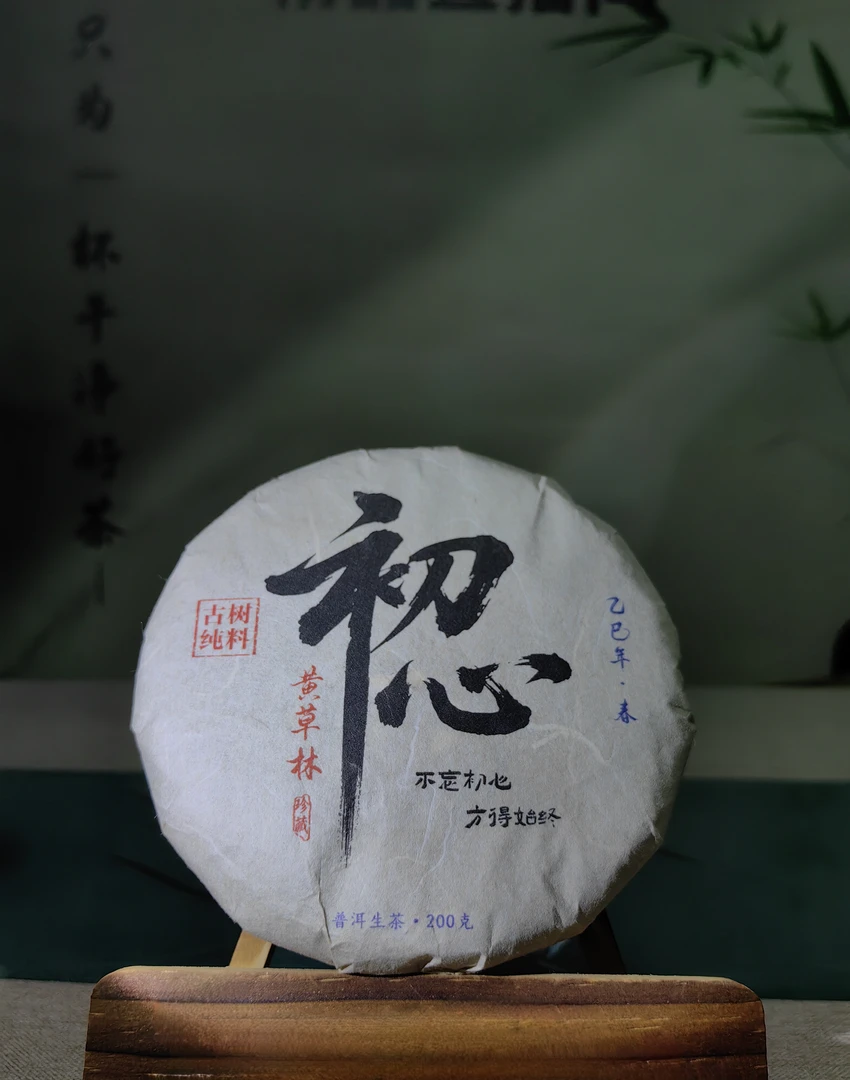 只为一杯干净好茶
初心
古树
纯料
黄草林
珍藏
乙巳年·春
不忘初心
方得始终
普洱生茶·200克